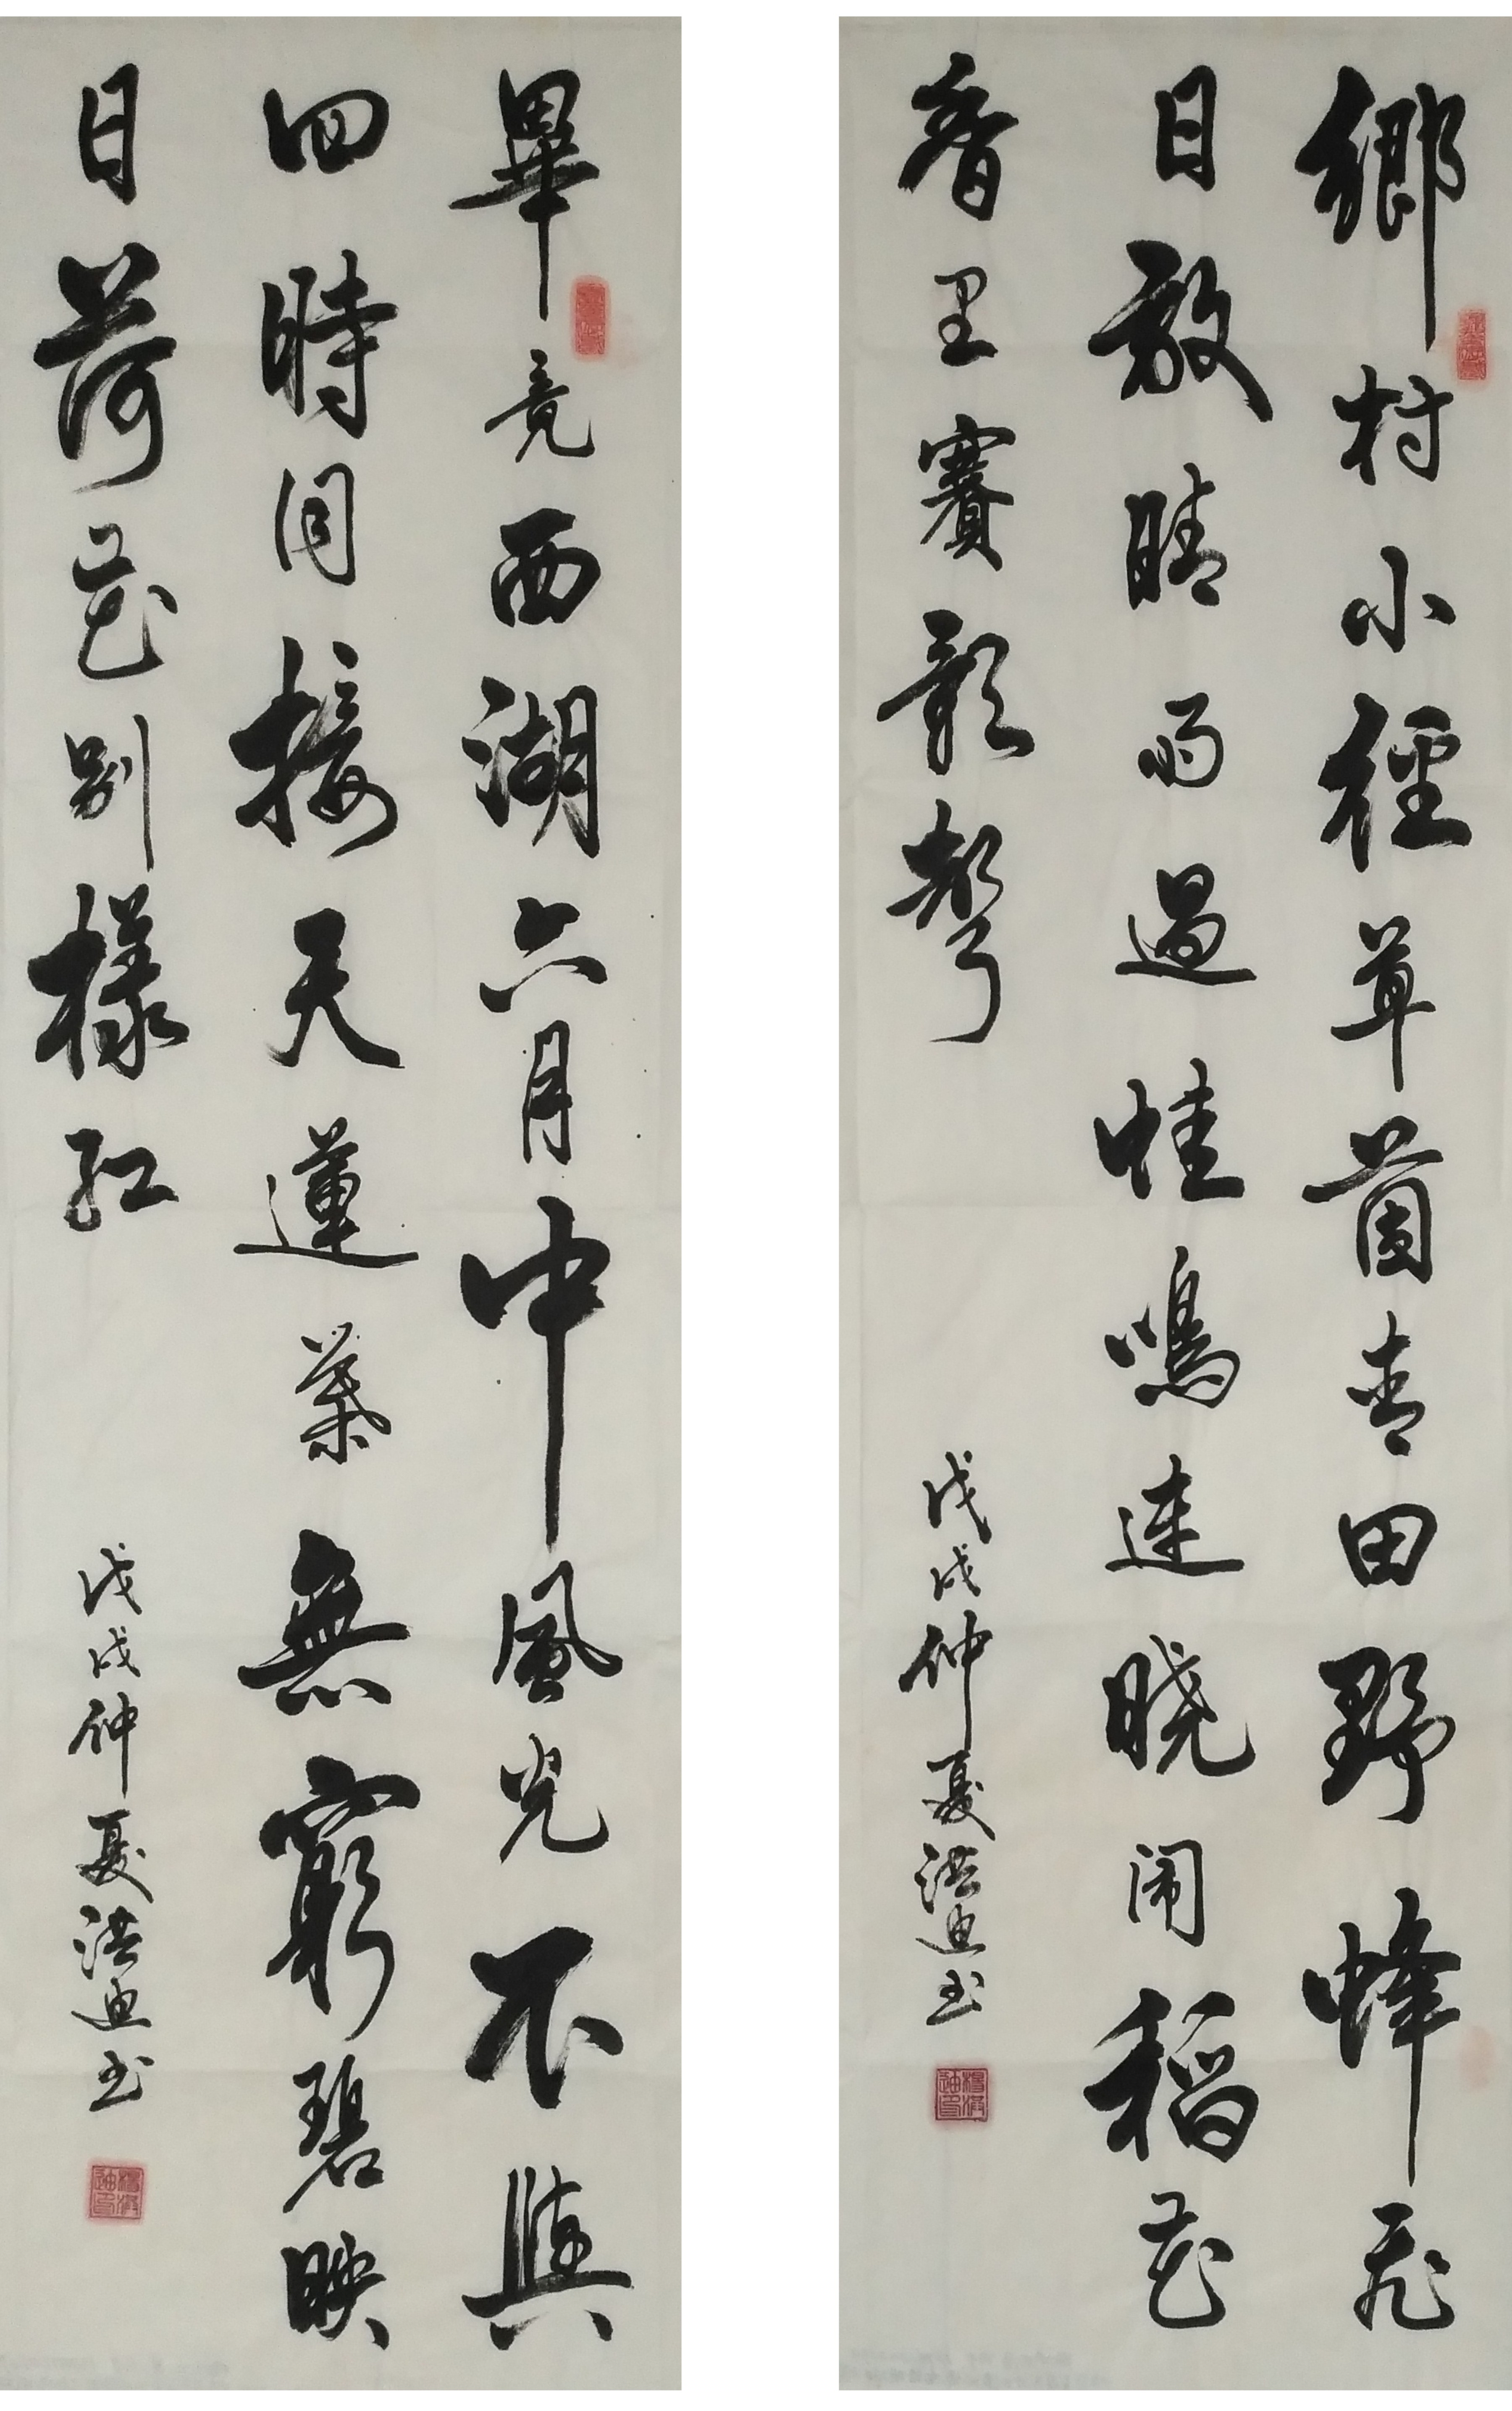 鄉村小徑草茵青田野蜂飛
日放晴雨過蛙鳴連晓闹稻花
香里賽歌聲
戊戌仲夏洪迪书
畢竟西湖六月中風光不與
四時同接天蓮葉無窮碧映
日荷花别樣红
戊戌仲夏洪迪书